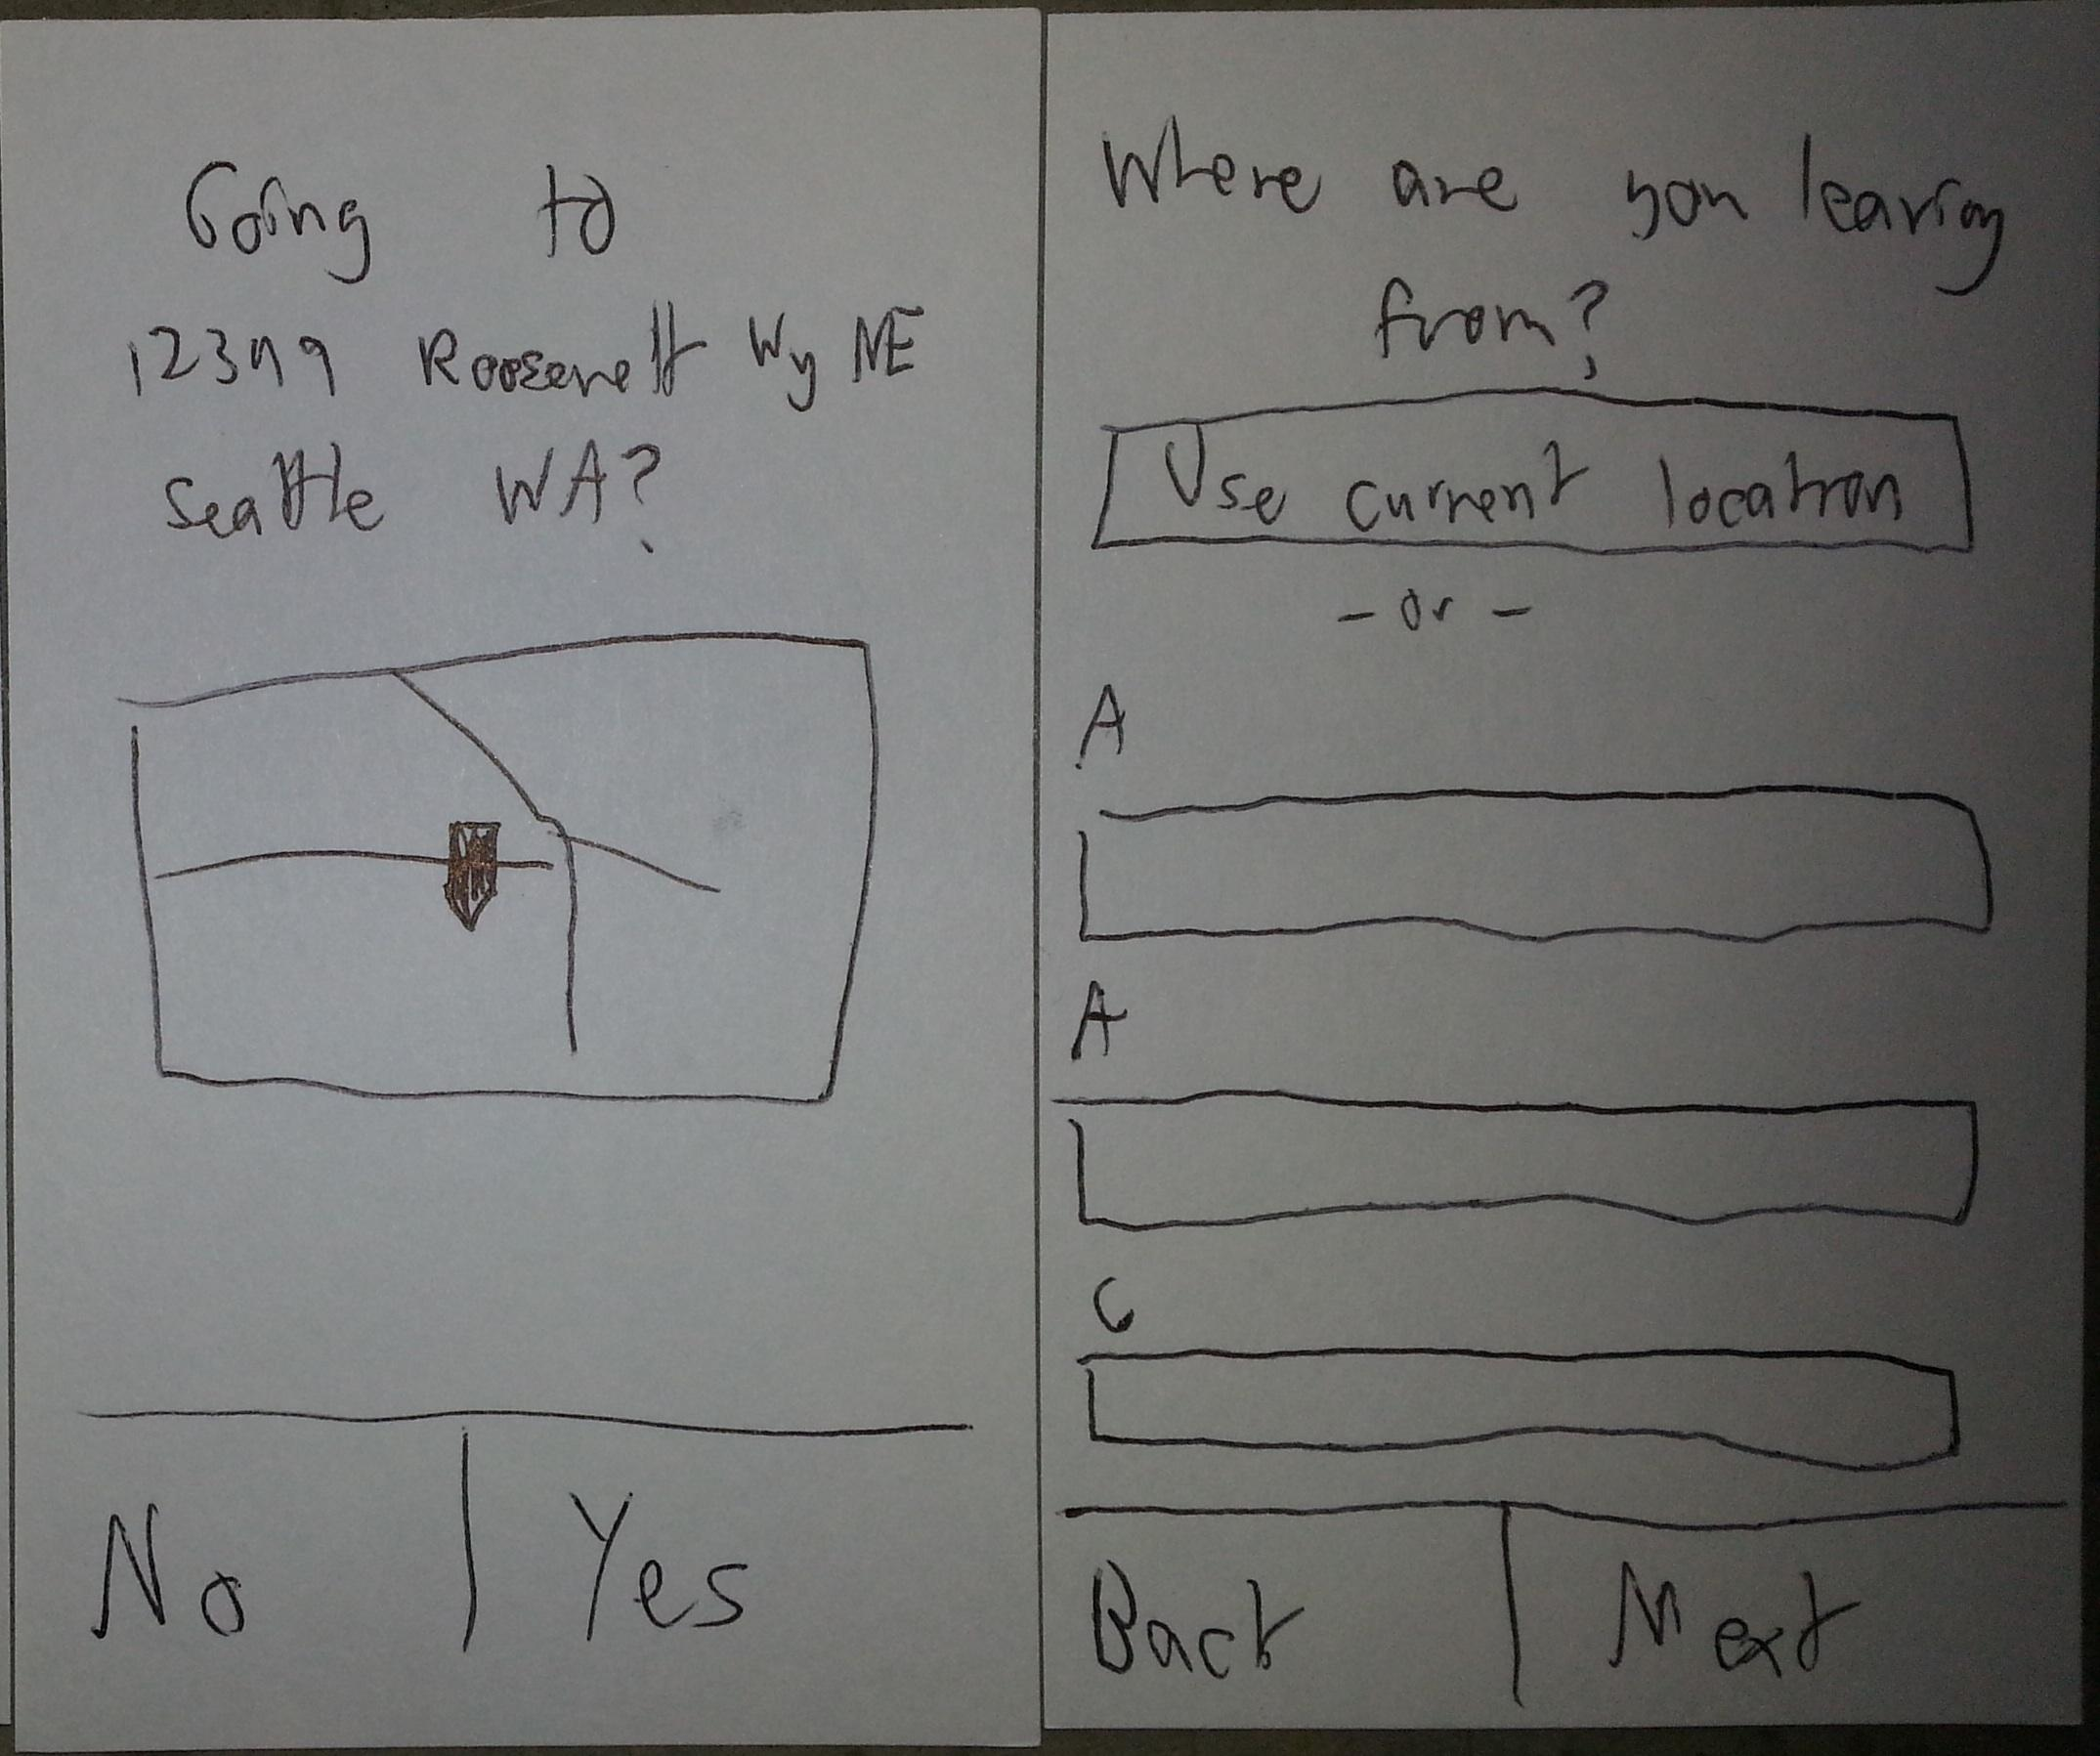 Going to
Roosevelt Wy NE
Seattle WA?
No Yes
Where are you leaving
from?
Use current location
- or -
A
A
C
Back Next